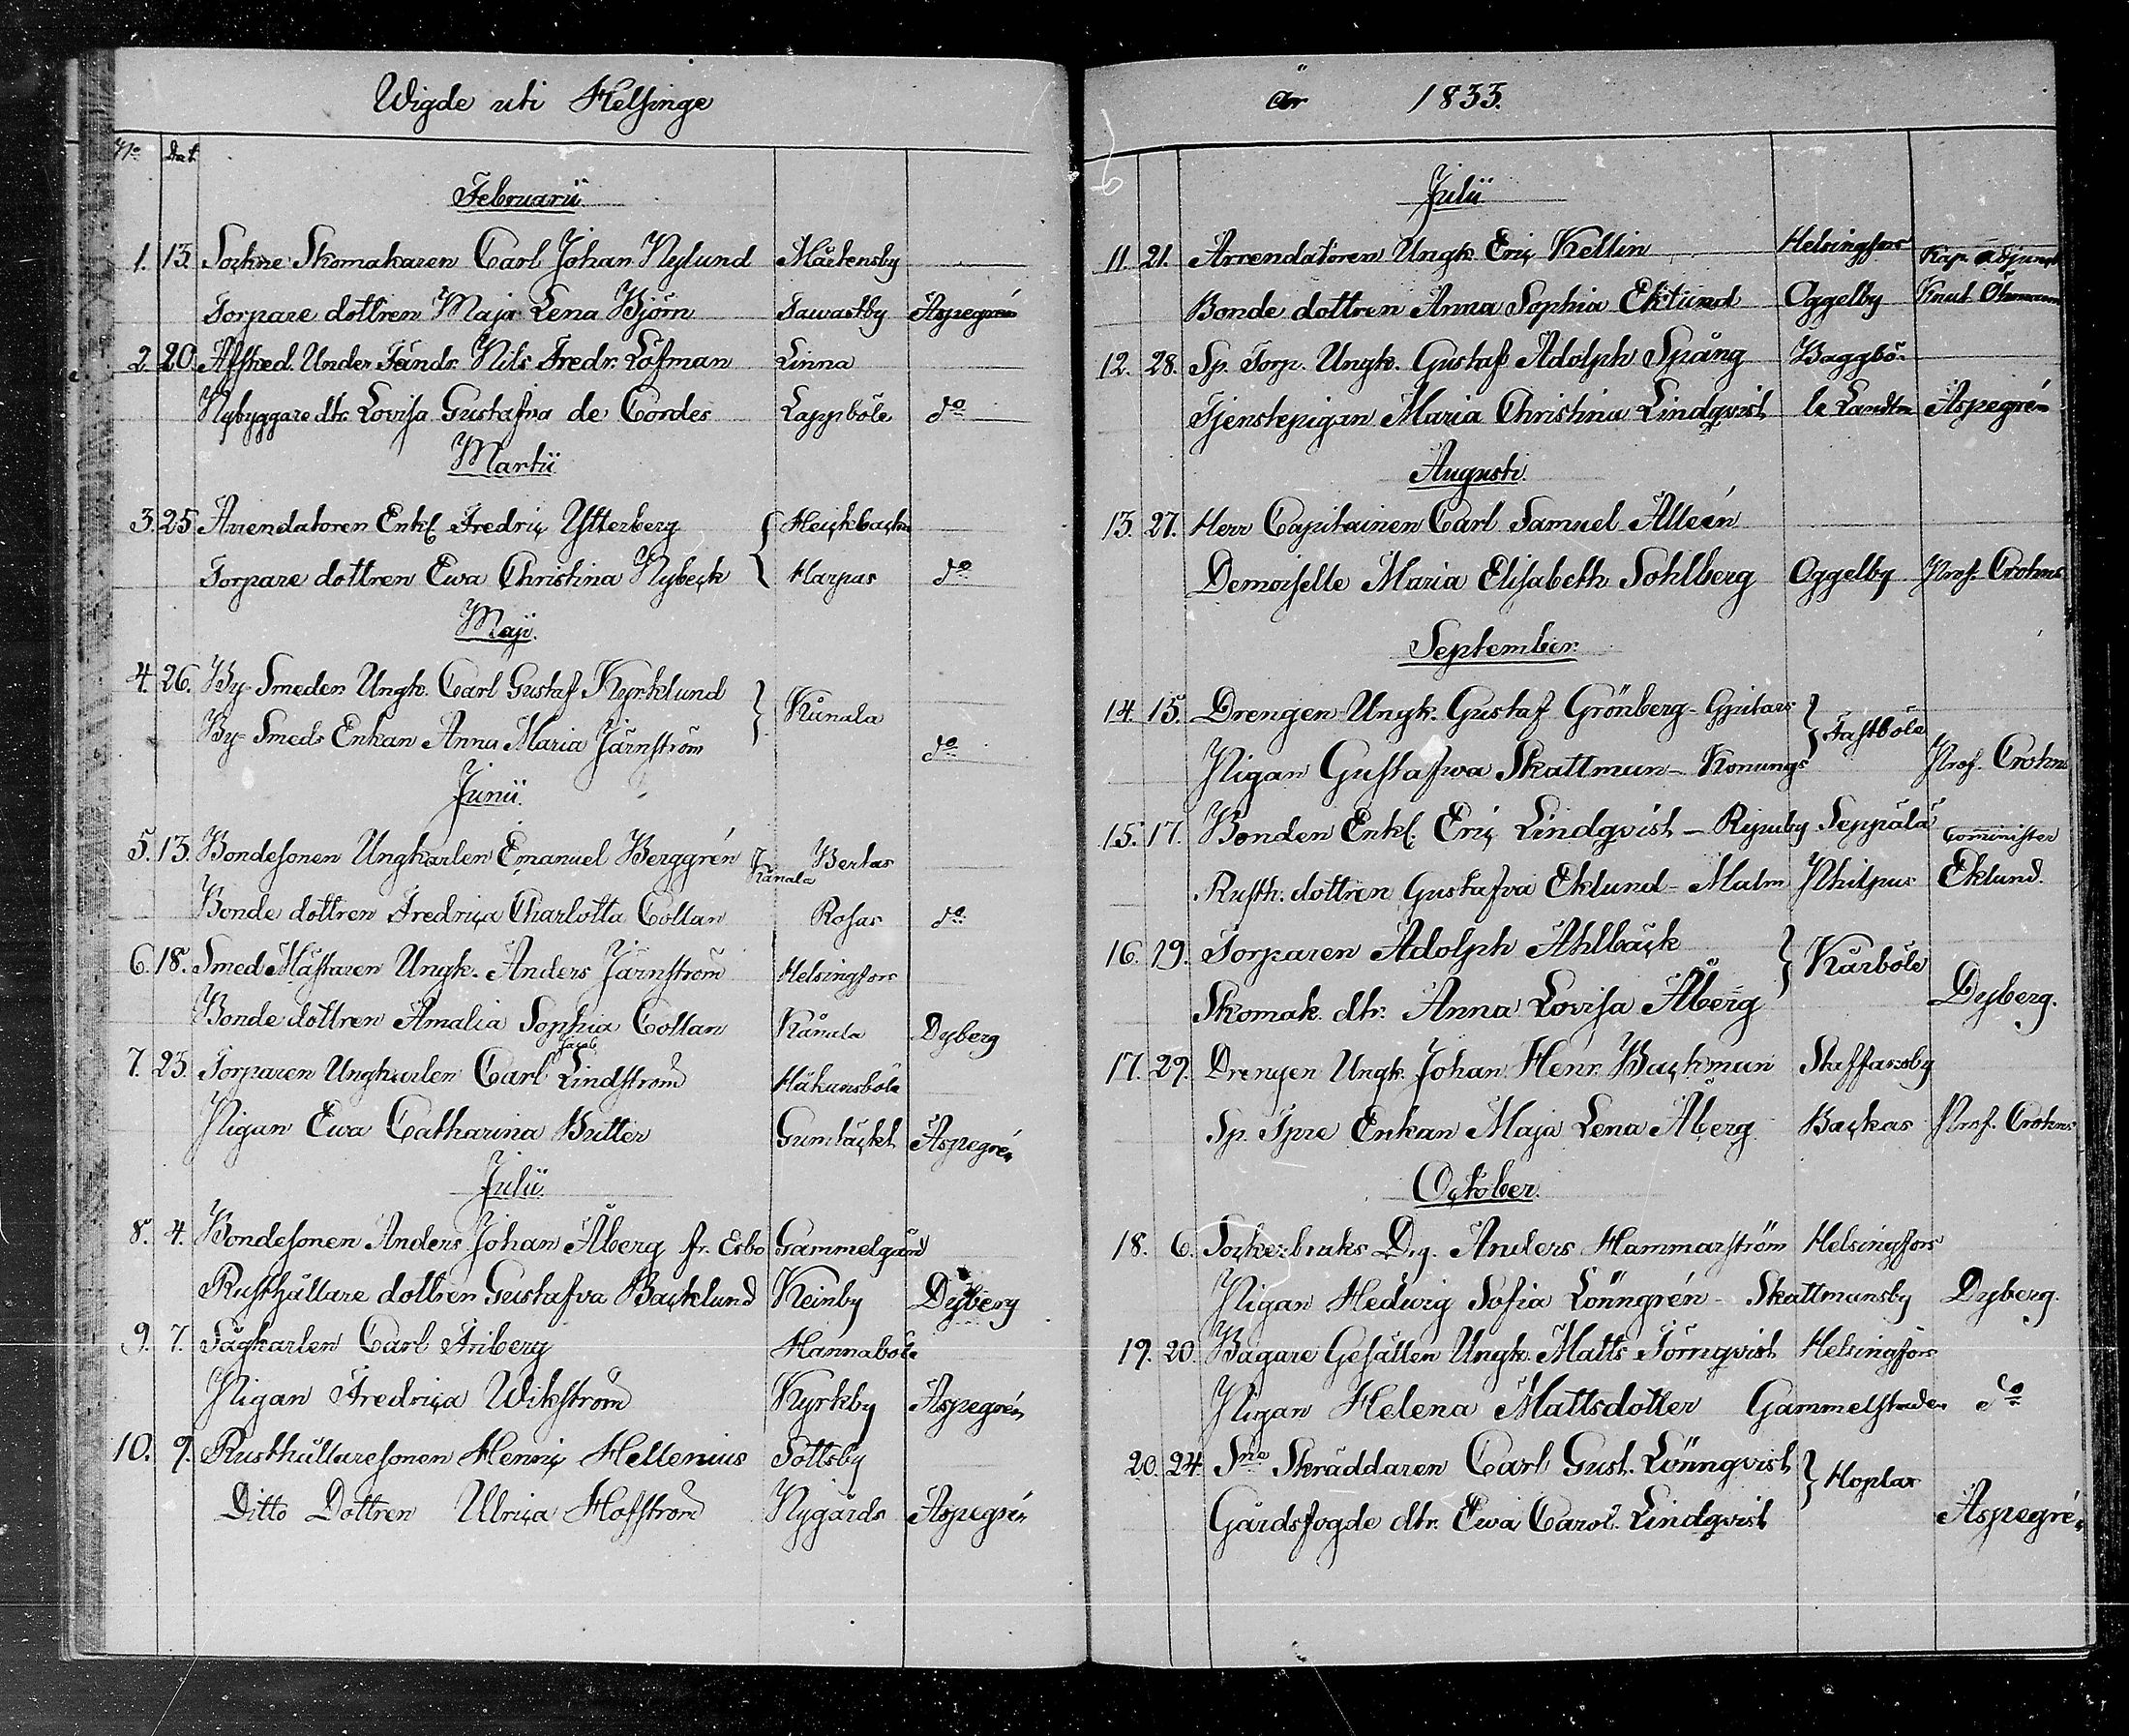 Wigde uti Helsinge
No Dat.
Februarii
1. 13. Sockne Skomakaren Carl Johan Nylund Mårtensby
Torpare dottren Maja Lena Björn Tawastby Aspegrén
2. 20. Afsked. Under Fändr. Nils Fredr. Löfman Linna
Nybyggare dtr. Lovisa Gustafva de Cordes Lappböle do
Martii
3. 25. Arrendatoren Enkl. Fredric Ytterberg
Torpare dottren Ewa Christina Nybeck Harpas do
Maji.
4. 26. By-Smeden Ungk. Carl Gustaf Kyrklund Kånala
By-Smeds Enkan Anna Maria Järnström do
Junii.
5. 13. Bondesonen Ungkarlen Emanuel Berggrén Kånala Bertas
Bonde dottren Fredrica Charlotta Collan Rosas do
6. 18. Smed Mästaren Ungk. Anders Järnström Helsingfors
Bonde dottren Amalia Sophia Collan Kånala Dyberg
7. 23. Torparen Ungkarlen Carl Jacob Lindström Håkansböle
Pigan Ewa Catharina Butter Gumtäckt Aspegrén
Julii.
8. 4. Bondesonen Anders Johan Åberg fr. Esbo Gammelgård
Rusthållare dottren Gustafva Backlund Keinby Dyberg
9. 7. Sågkarlen Carl Friberg Hannaböle
Pigan Fredrica Wikström Kyrkby Aspegrén
10. 9. Rusthållaresonen Henric Hellenius Sottsby
Ditto Dottren Ulrica Hofström Nygårds Aspegrén
år 1833.
Julii
11. 21. Arrendatoren Ungk. Eric Kellin Helsingfors Kap. Adjunct
Bonde dottren Anna Sophia Eklund Oggelby Knut Öhmann
12. 28. Sp. Torp. Ungk. Gustaf Adolph Spång Baggbö-
Tjenstepigan Maria Christina Lindqvist le Landtm Aspegrén
Augusti.
13. 27. Herr Capitainen Carl Samuel Alleén
Demoiselle Maria Elisabeth Sohlberg Oggelby Prof. Crohns
September.
14. 15. Drengen Ungk. Gustaf Grönberg - Gjutars Fastböle
Pigan Gustafwa Skattman - Konungs Prof. Crohns
15. 17. Bonden Enkl. Eric Lindqvist - Ripuby Seppälä Comminister
Rusth. dottren Gustafva Eklund - Malm Philpus Eklund.
16. 19. Torparen Adolph Ahlbäck Kårböle
Skomak. dtr. Anna Lovisa Åberg Dyberg.
17. 29. Drengen Ungk. Johan Henr. Backman Staffansby
Sp. Tpre Enkan Maja Lena Åberg Backas Prof. Crohns
October.
18. 6. Sockerbruks Drg. Anders Hammarström Helsingfors
Pigan Hedwig Sofia Lönngrén - Skattmansby Dyberg.
19. 20. Bagare Gesällen Ungk. Matts Törnqvist Helsingfors
Pigan Helena Mattsdotter Gammelstaden do
20. 24. Sne Skräddaren Carl Gust. Lönnqvist Hoplax
Gårdsfogde dtr. Ewa Carol. Lindqvist Aspegrén